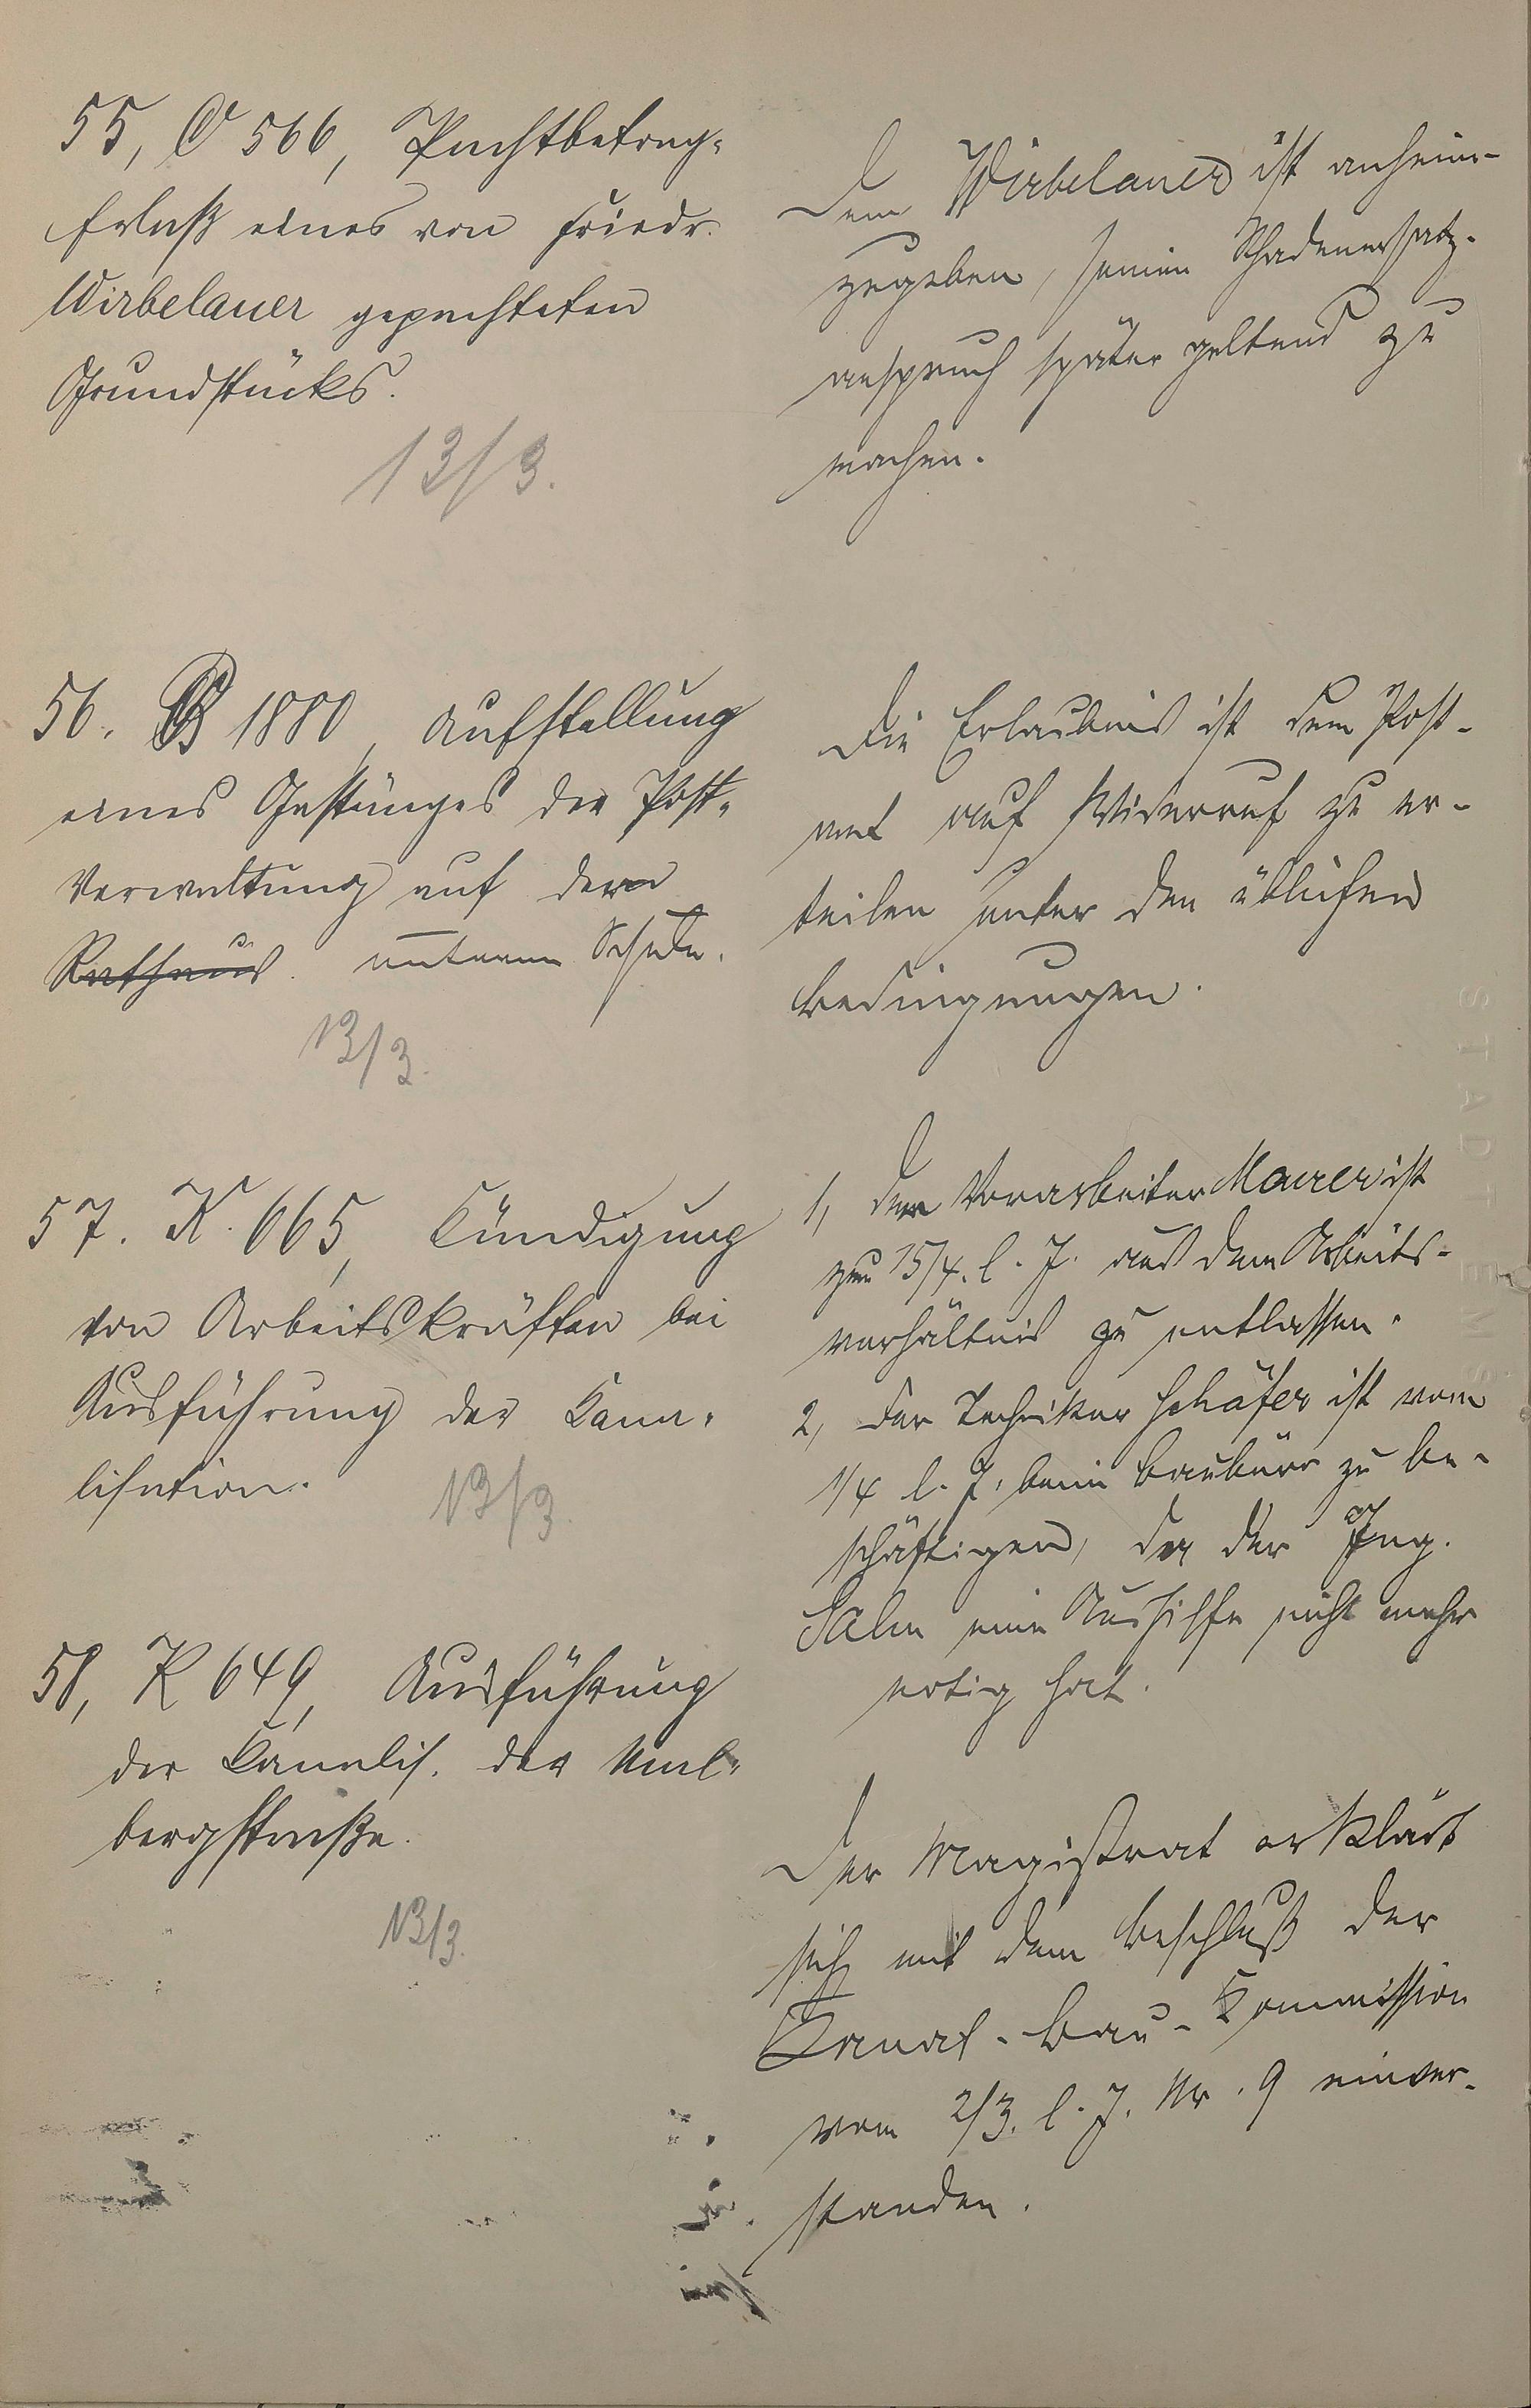 55, C 566, Pachtbetrag-
Erlaß eines von Friedr.
Wirbelauer gepachteten
Grundstücks.
13/3.
Dem Wirbelauer ist anheim-
zugeben, seinen Schadenersatz-
anspruch später geltend zu
machen.
56. B 1880, Aufstellung
eines Gestänges der Post-
Verwaltung auf der
Rathaus. unteren Schule.
13/3.
Die Erlaubnis ist dem Post-
amt auf Widerruf zu er-
teilen unter den üblichen
Bedingungen.
57. K. 665, Kündigung
von Arbeitskräften bei
Ausführung der Kana-
lisation.
13/3.
1, Der Vorarbeiter Maurer ist
zum 15/4. l. J. aus dem Arbeits-
verhältnis zu entlassen.
2, Der Techniker Schäfer ist vom
1/4 l. J. beim Baubüro zu be-
schäftigen, da der Ing.
Salm eine Aushilfe nicht mehr
nötig hat.
58, K 649, Ausführung
der Kanalis. der Mal-
bergstraße.
13/3.
Der Magistrat erklärt
sich mit dem Beschluß der
Kanal-Bau-Kommission
vom 2/3. l. J. Nr. 9 einver-
standen.